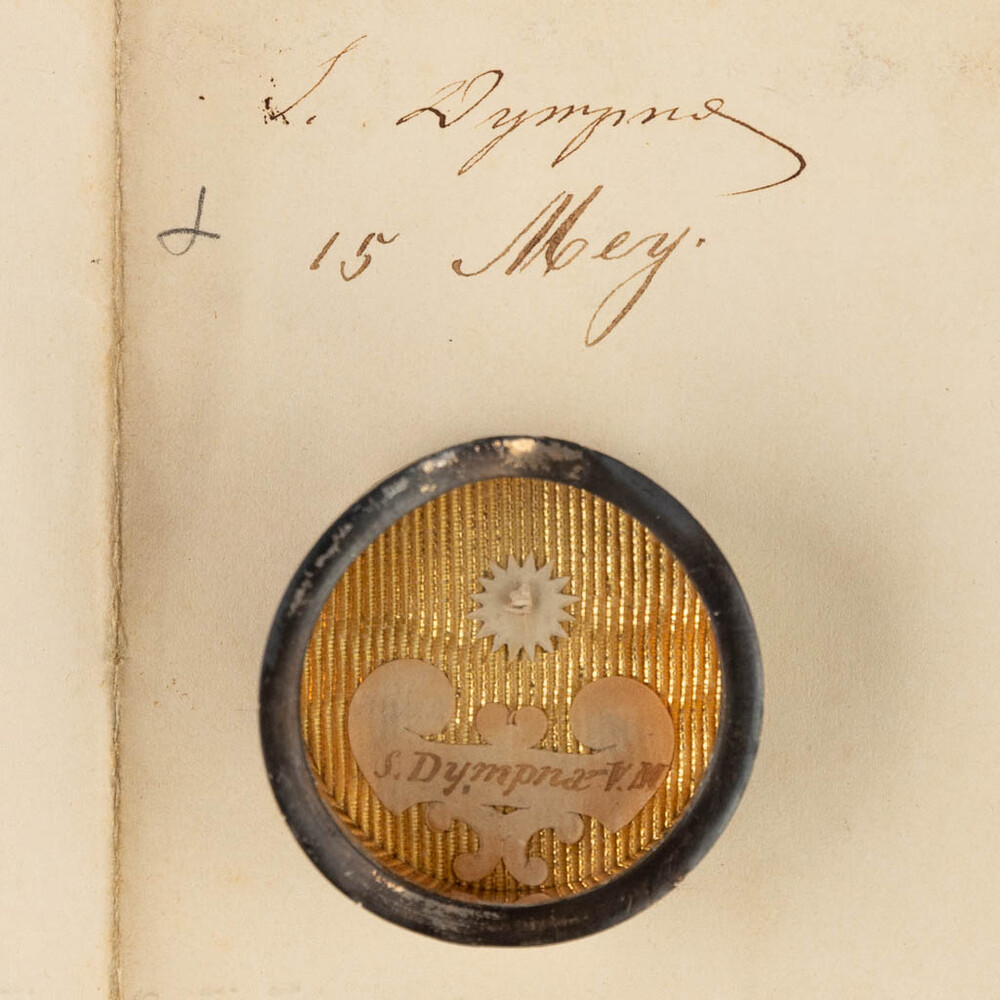 S. Dympna
15 Mey.
S. Dÿmpnæ V. M